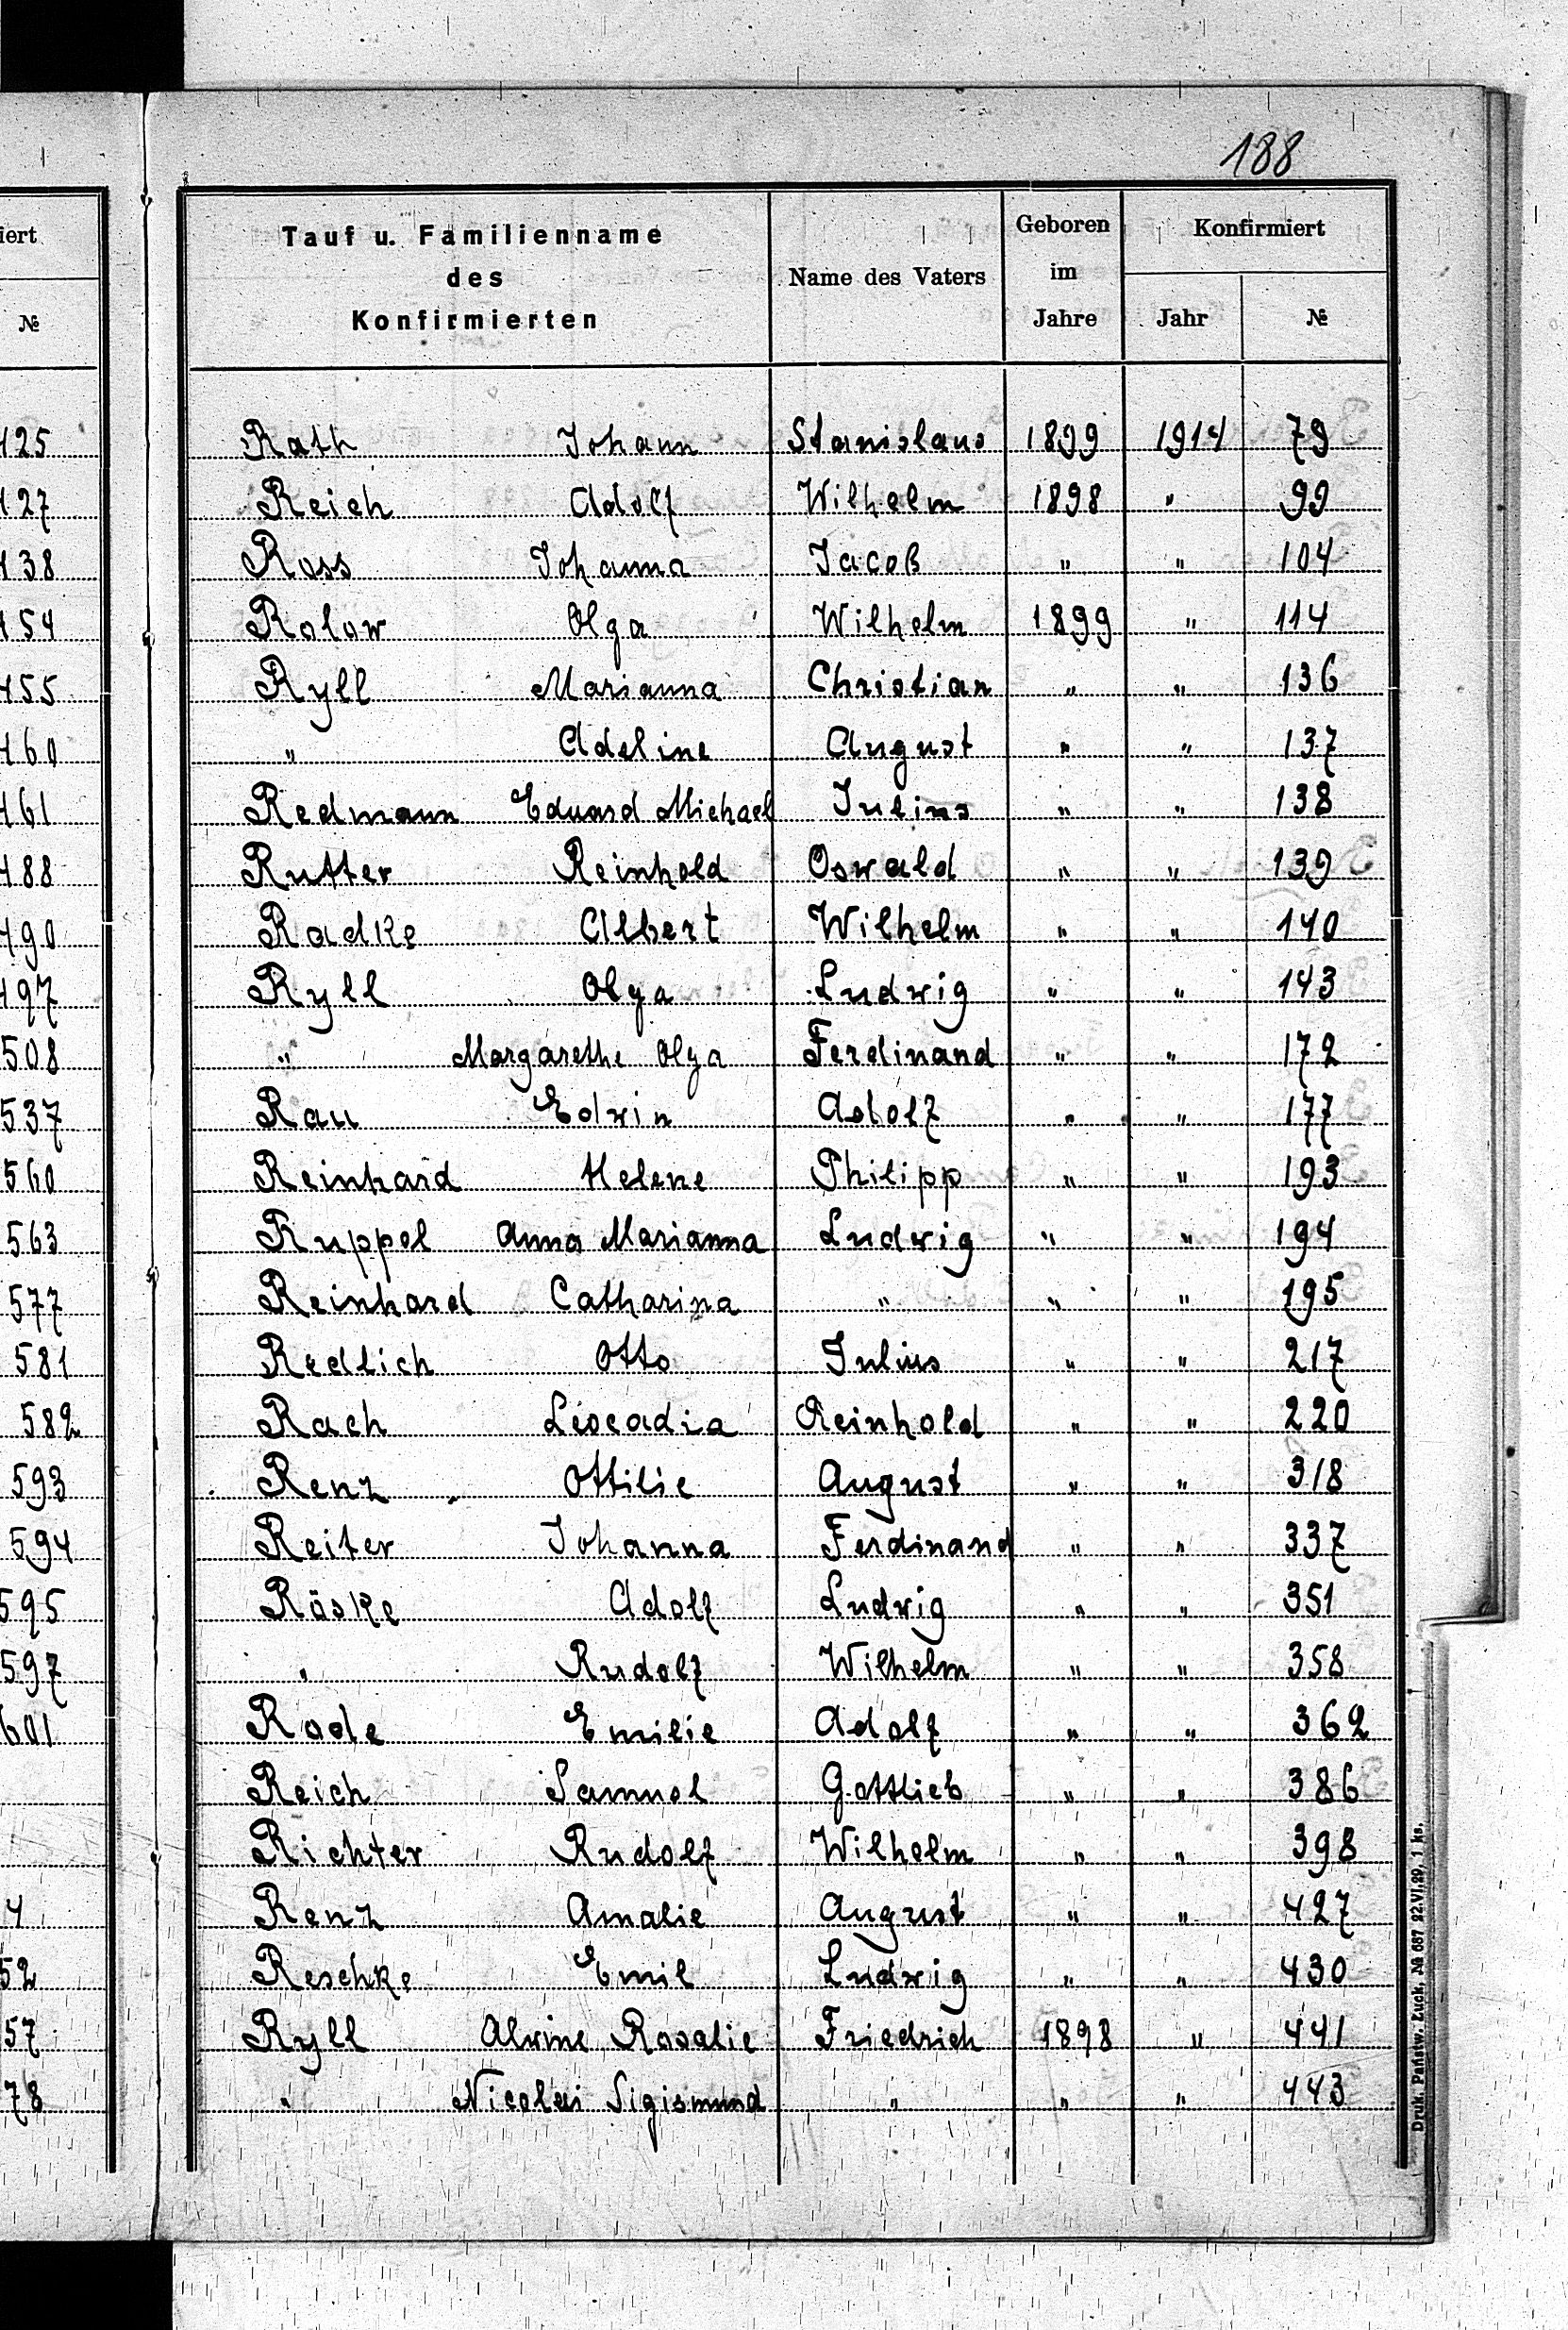 188
iert
№
Tauf u. Familienname des Konfirmierten | Name des Vaters | Geboren im Jahre | Konfirmiert Jahr | №
425 | Rath Johann | Stanislaus | 1899 | 1914 | 79
427 | Reich Adolf | Wilhelm | 1898 | " | 99
438 | Ross Johanna | Jacob | " | " | 104
454 | Rolow Olga | Wilhelm | 1899 | " | 114
455 | Ryll Marianna | Christian | " | " | 136
460 | " Adeline | August | " | " | 137
461 | Redmann Eduard Michael | Julius | " | " | 138
488 | Rutter Reinhold | Oswald | " | " | 139
490 | Radke Albert | Wilhelm | " | " | 140
497 | Ryll Olga | Ludwig | " | " | 143
508 | " Margarethe Olga | Ferdinand | " | " | 172
537 | Rau Edwin | Adolf | " | " | 177
560 | Reinhard Helene | Philipp | " | " | 193
563 | Ruppel Anna Marianna | Ludwig | " | " | 194
577 | Reinhard Catharina | " | " | " | 195
581 | Redlich Otto | Julius | " | " | 217
582 | Rach Leocadia | Reinhold | " | " | 220
593 | Renz Ottilie | August | " | " | 318
594 | Reiter Johanna | Ferdinand | " | " | 337
595 | Räske Adolf | Ludwig | " | " | 351
597 | " Rudolf | Wilhelm | " | " | 358
601 | Rode Emilie | Adolf | " | " | 362
Reich Samuel | Gottlieb | " | " | 386
Richter Rudolf | Wilhelm | " | " | 398
4 | Renz Amalie | August | " | " | 427
52 | Reschke Emil | Ludwig | " | " | 430
57 | Ryll Alwine Rosalie | Friedrich | 1898 | " | 441
78 | " Nicolai Sigismund | " | " | " | 443
Druk. Państw. Łuck. № 687 22.VI.29. 1 ks.